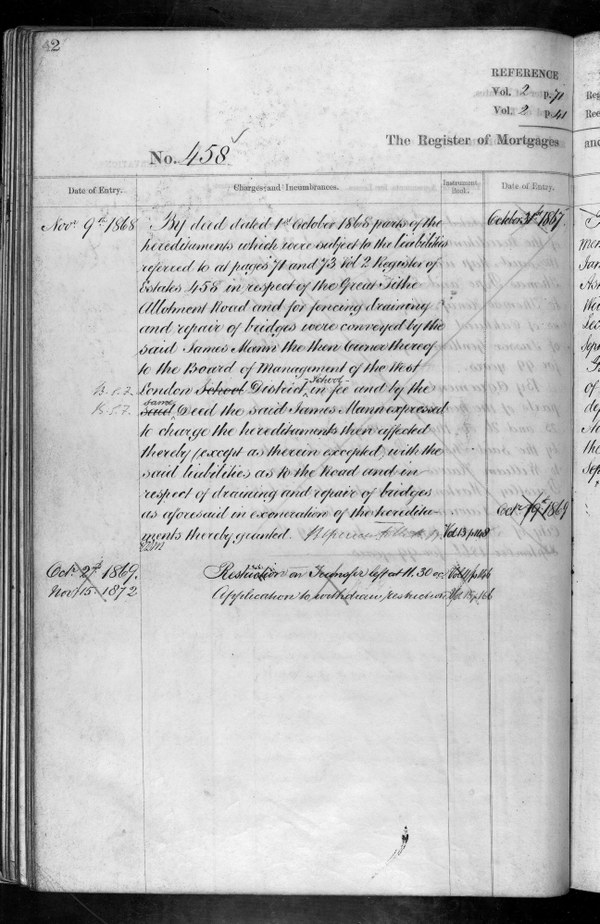 42
REFERENCE
Vol. 2 p. 71
Vol. 2 p. 41
The Register of Mortgages
No. 458
Date of Entry.
Charges and Incumbrances.
Instrument Book.
Date of Entry.
Novr 9th 1868
By deed dated 1st October 1868 parts of the
hereditaments which were subject to the liabilities
referred to at pages 71 and 73 Vol 2 Register of
Estates 458 in respect of the Great Tithe
Allotment Road and for fencing draining
and repair of bridges were conveyed by the
said James Mann the then Owner thereof
to the Board of Management of the West
London School District School in fee and by the
said same Deed the said James Mann expressed
to charge the hereditaments then affected
thereby (except as therein excepted) with the
said liabilities as to the Road and in
respect of draining and repair of bridges
as aforesaid in exoneration of the heredita-
ments thereby granted.
Vol 13 p 148
October 31st 1867.
Octr 19th 1869
Octr 2nd 1869.
Restriction on Transfer left at 11.30
Novr 15. 1872
Application to withdraw restriction
Reg
Rec
and